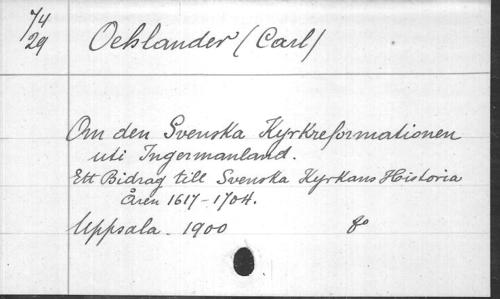 74
29
Oehlander (Carl)
Om den Svenska Kyrkreformationen
uti Ingermanland.
Ett Bidrag till Svenska Kyrkans Historia
Åren 1617-1704.
Uppsala. 1900 8º